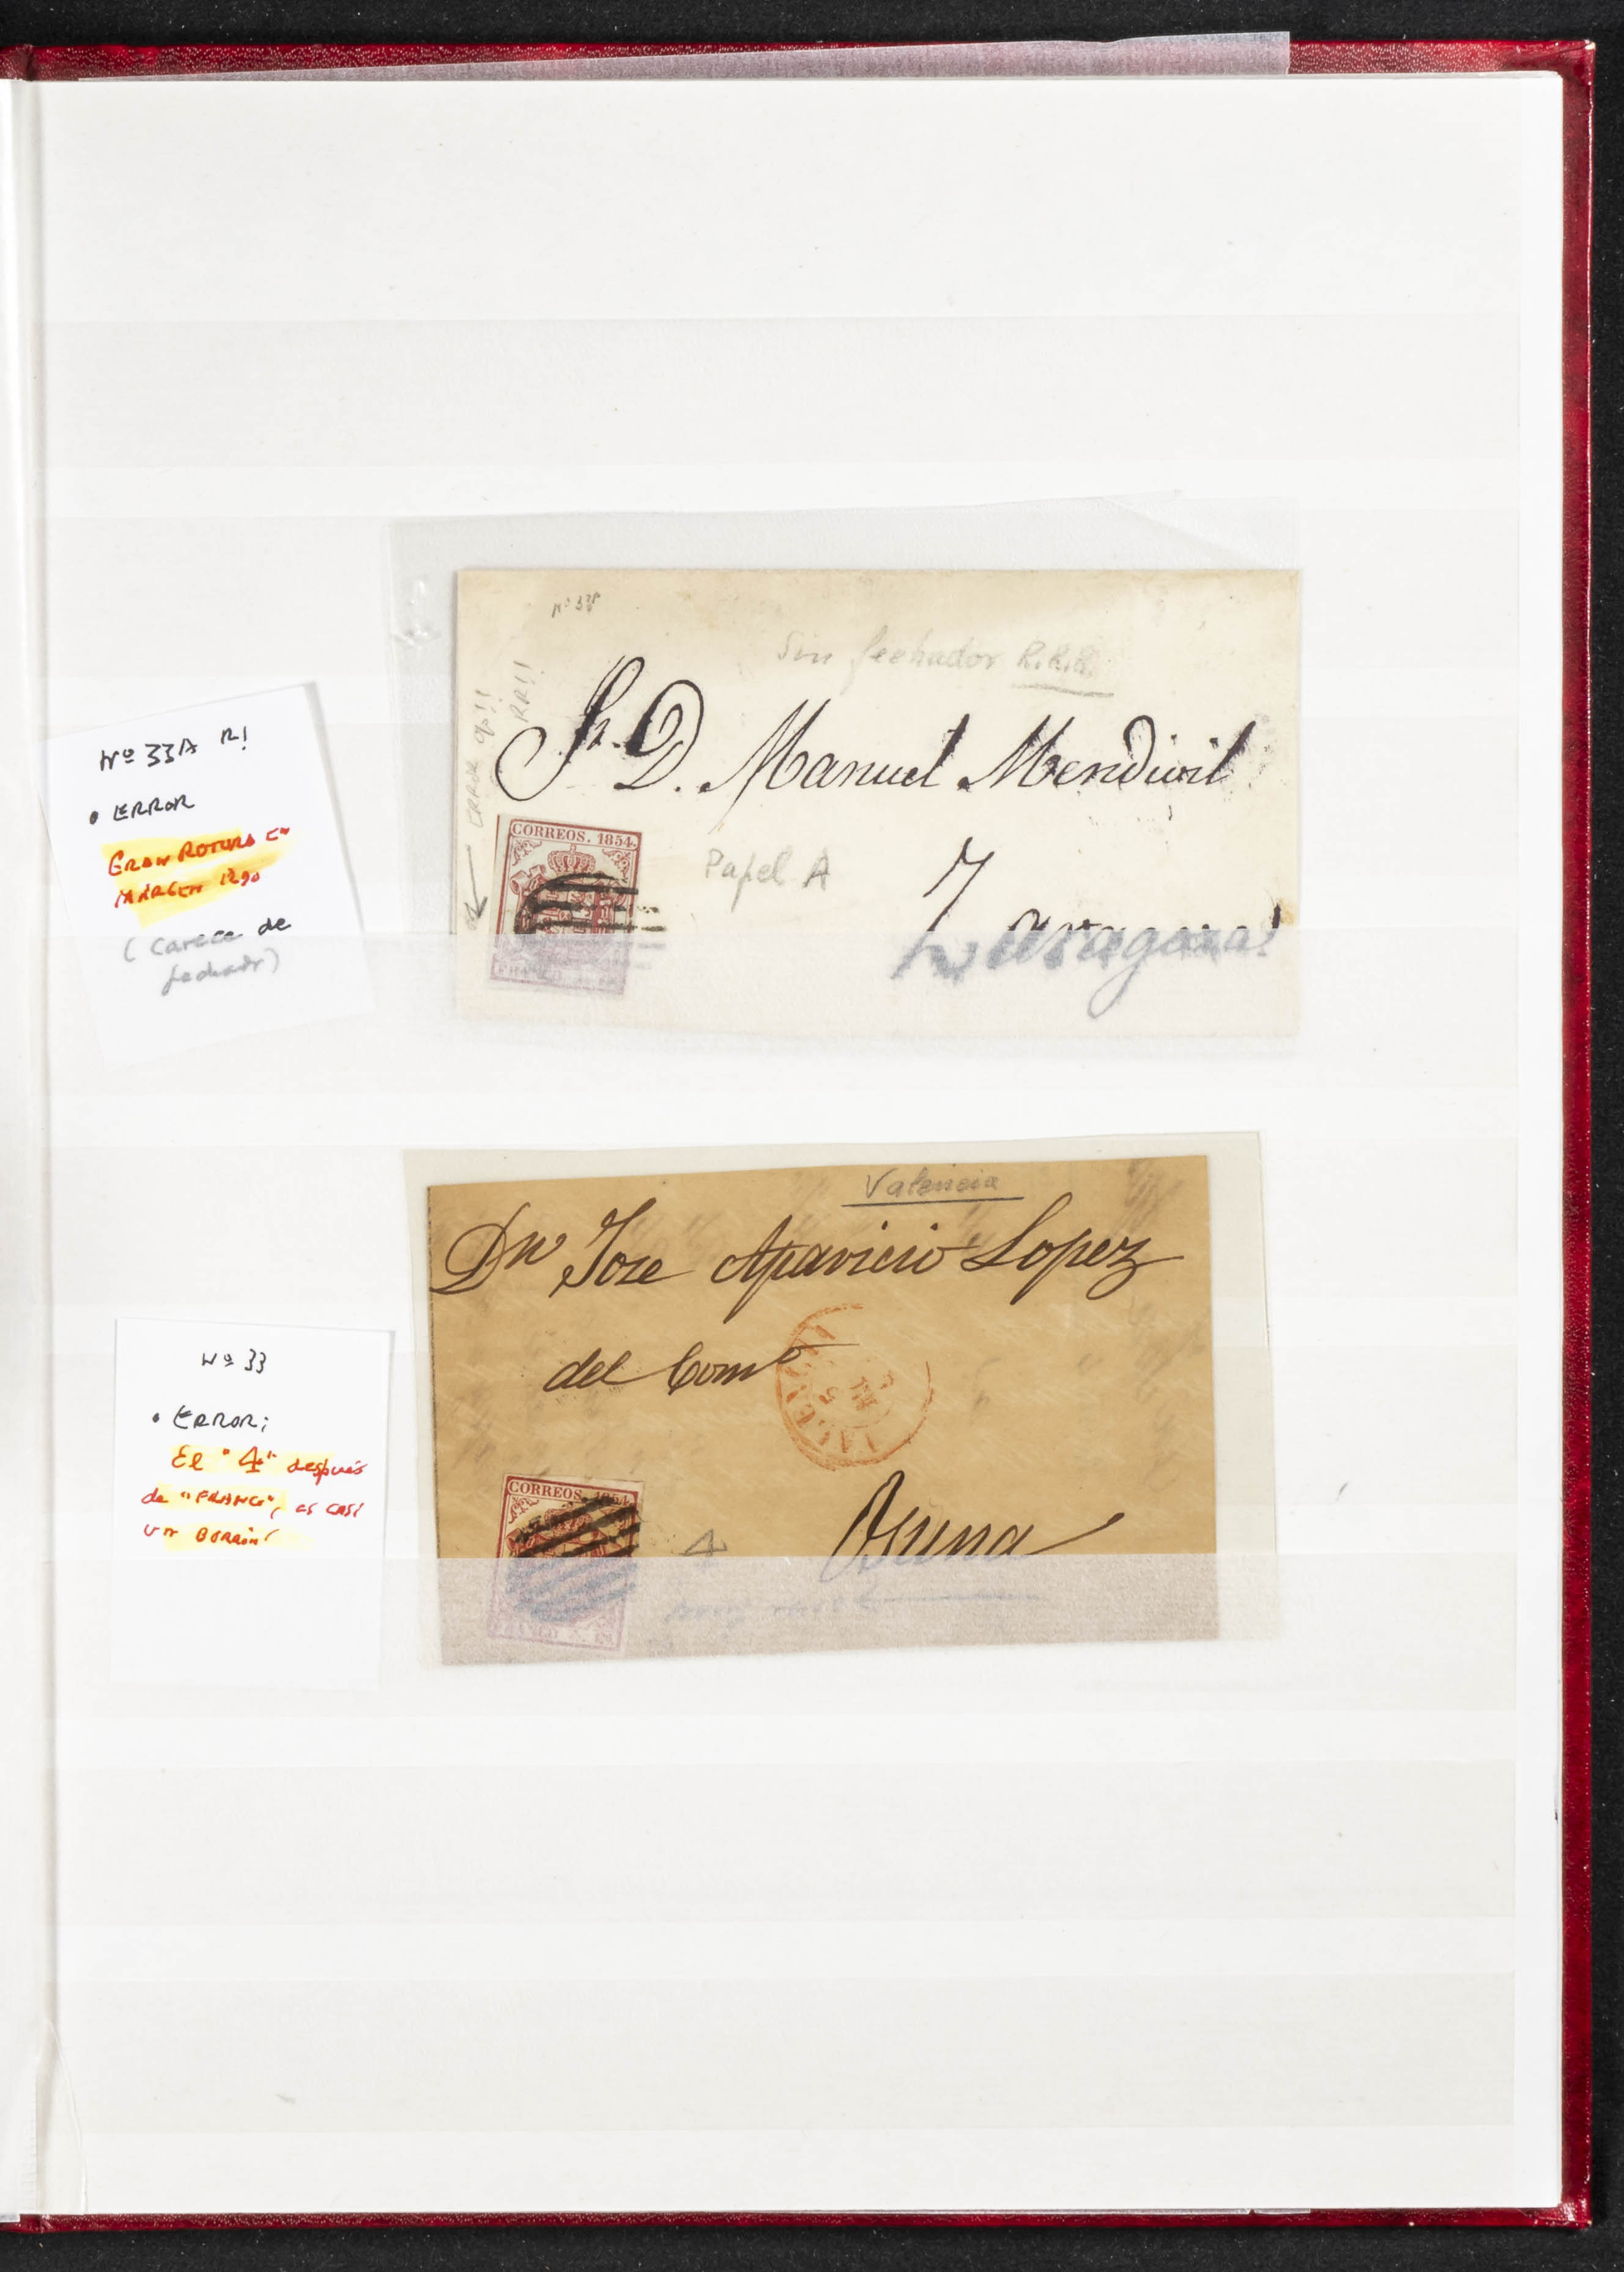 Nº 33A R!
• ERROR
GRAN ROTURA EN
MARGEN IZQO
(carece de
fechador)
Sin fechador R.R.R.
ERROR
RR!!
Sr. D. Manuel Mendivil
CORREOS. 1854.
Papel A
Zaragoza
FRANCO
Nº 33
• ERROR:
El "4" después
de "FRANCO", es casi
un BORRÓN!
Valencia
Dn Jose Aparicio Lopez
del Como
VALENCIA
CORREOS. 1854.
4
Osuna
FRANCO